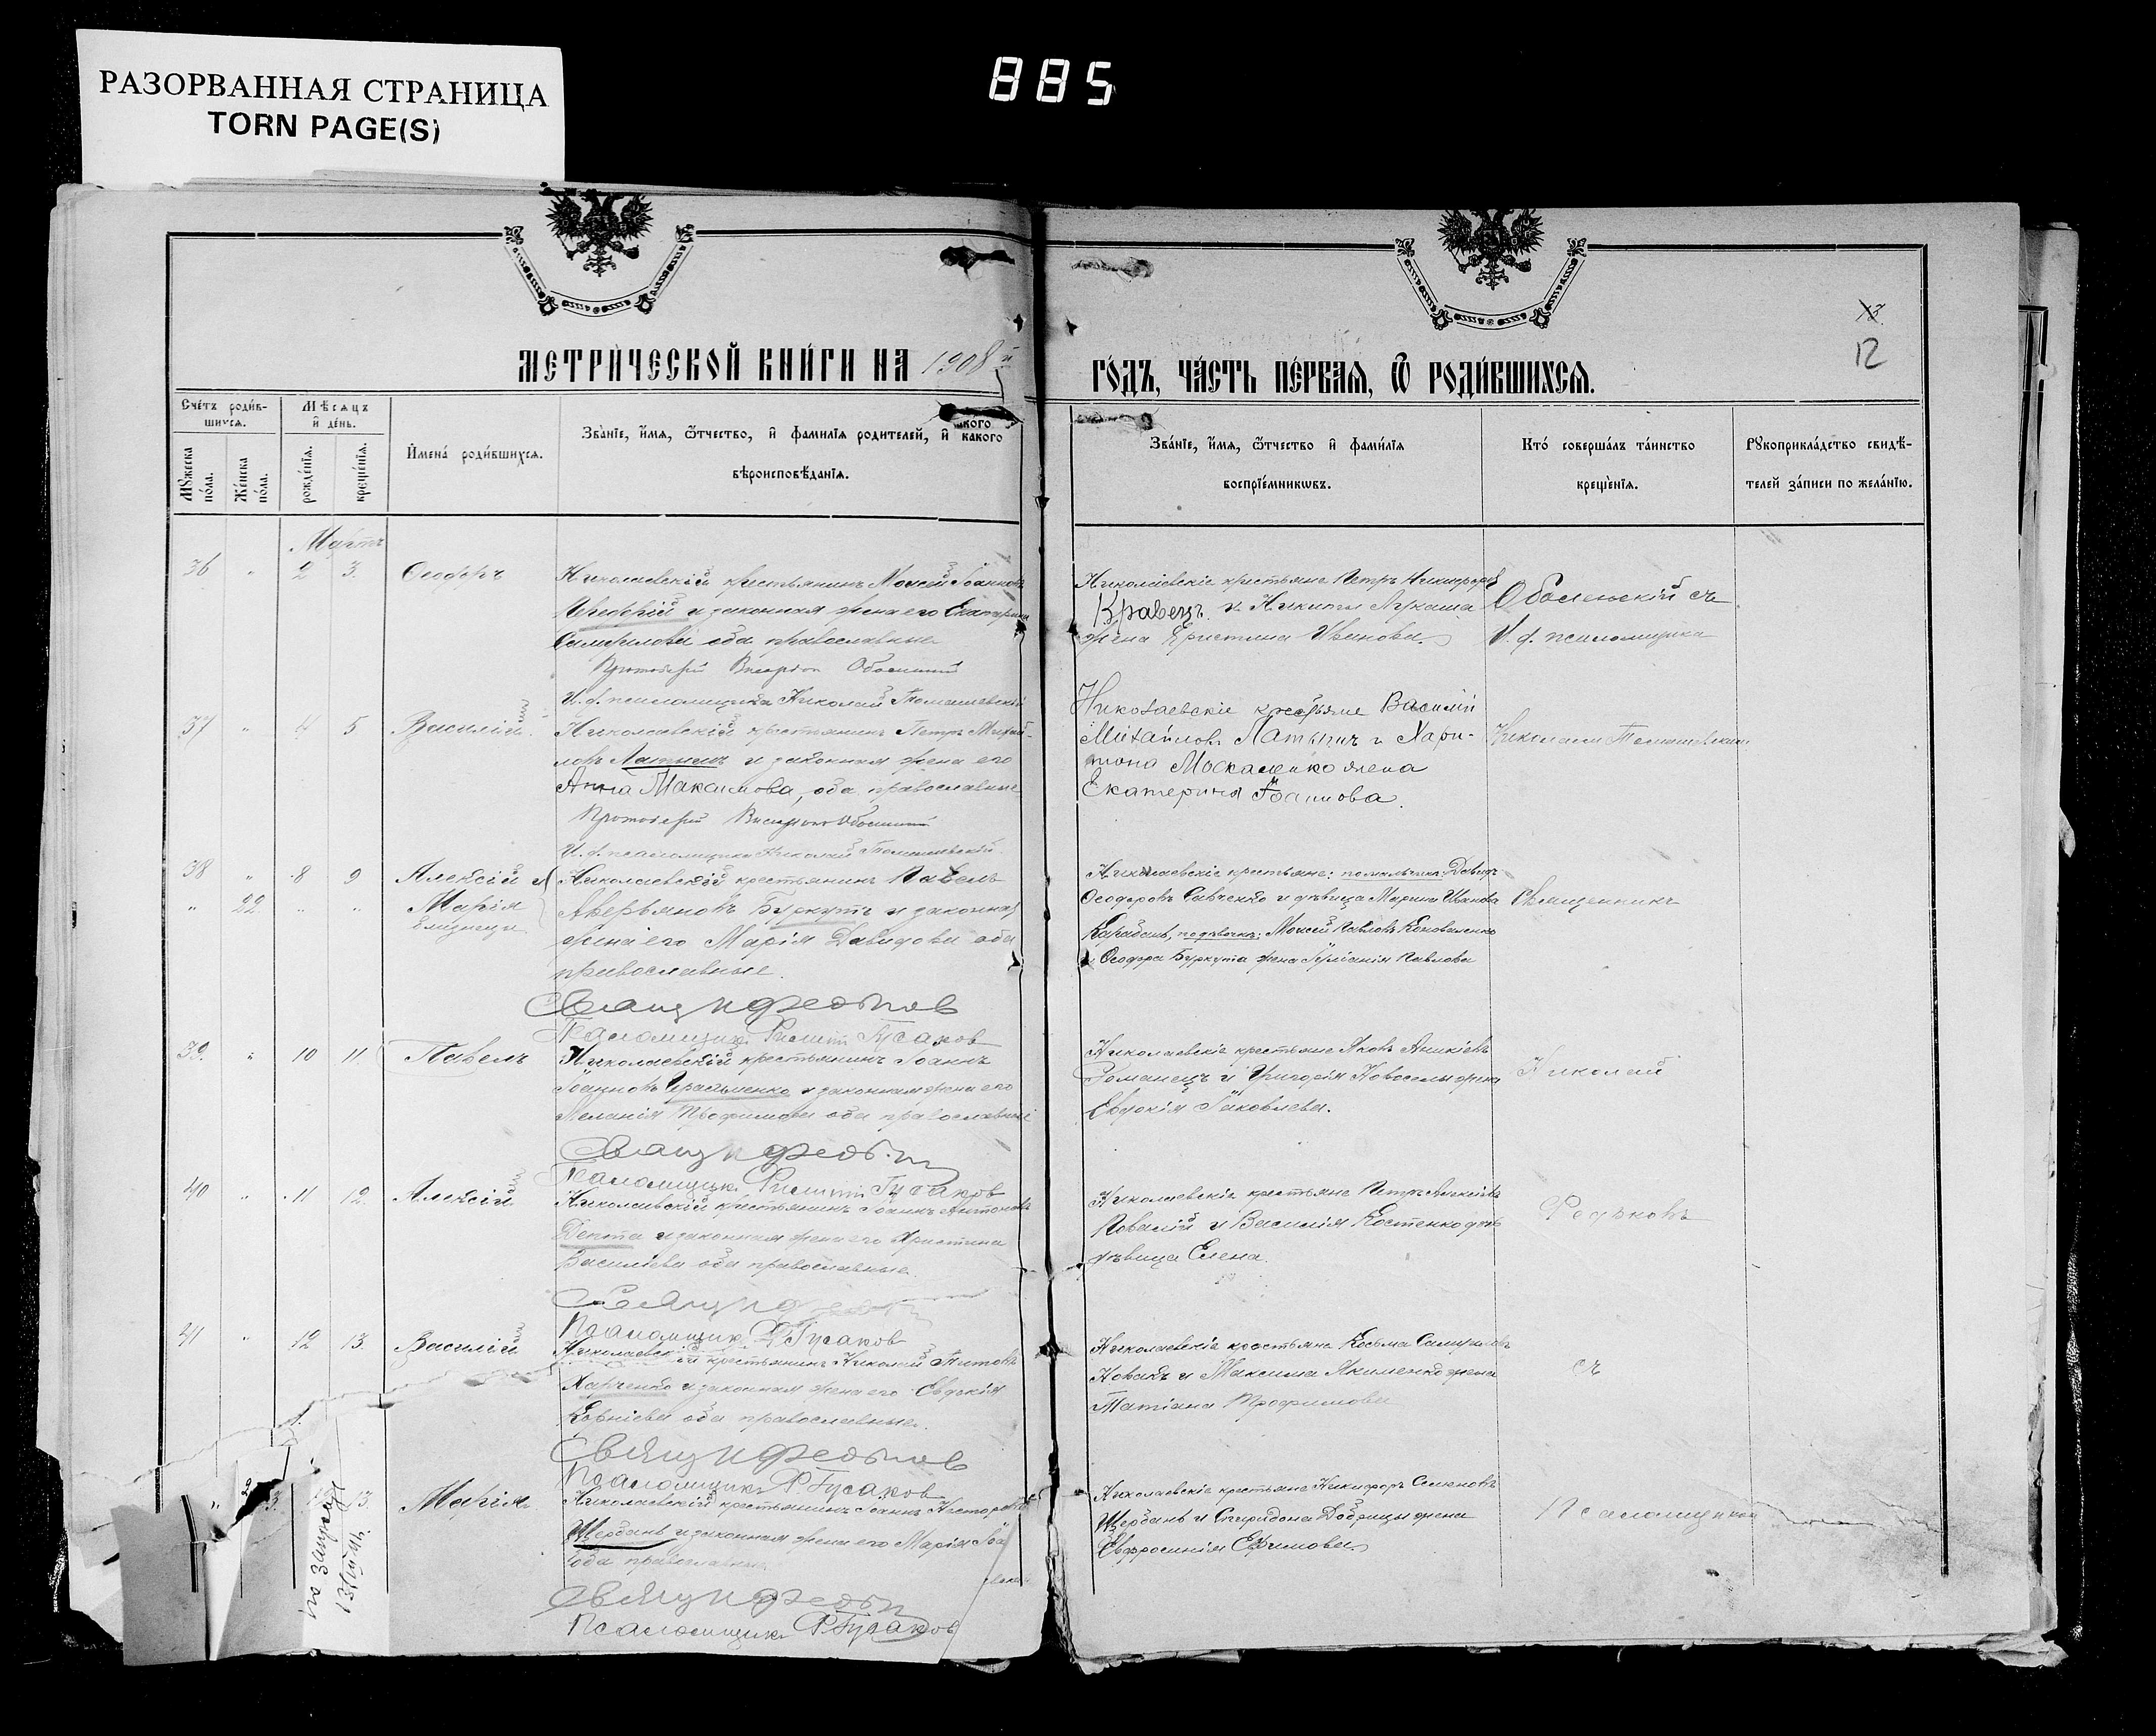 РАЗОРВАННАЯ СТРАНИЦА
TORN PAGE(S)
885
13.
12
МЕТРИЧЕСКОЙ КНИГИ НА 1908й
ГОДЪ, ЧАСТЬ ПЕРВАЯ, Ѿ РОДИВШИХСЯ.
Счетъ родившихся.
Мѣсяцъ и день.
Мужеска пола.
Женска пола.
рожденія.
крещенія.
Имена родившихся.
Званіе, имя, ѿчество, и фамилія родителей, и какого
вѣроисповѣданія.
Званіе, имя, ѿчество и фамилія
воспріемниковъ.
Кто совершалъ таинство
крещенія.
Рукоприкладство свидѣ-
телей записи по желанію.
Мартъ
36 " 2 3. Ѳеодоръ
Николаевскій крестьянинъ Моисей Іоанновъ
и законная жена его Екатерина
Самуилова оба православные
Протоіерей Виссаріон Оболенский
И. д. псаломщика Николай Томашевскій
Николаевскіе крестьяне Петръ Никифоровъ
Кравецъ и Никиты Лукаша
жена Христина Иванова.
Оболенскій съ
И. д. псаломщика
37 " 4 5 Василій
Николаевскій крестьянинъ Петръ Михай-
ловъ Латышъ и законная жена его
Анна Максимова, оба православные
Протоіерей Виссаріон Оболенский
И. д. псаломщика Николай Томашевскій
Николаевскіе крестьяне Василій
Михайловъ Латышъ и Хари-
тона Москаленко жена
Екатерина Іоаннова.
Николаем Томашевским
38 " 8 9 Алексій и
" 22 " " Марія
близнецы
Николаевскій крестьянинъ Павелъ
Аверьяновъ Буркутъ и законная
жена его Марія Давидова оба
православные.
Свящ. И Федьков
Псаломщик Филипп Гусаков
Николаевскіе крестьяне: по мальчикѣ: Давидъ
Ѳеодоровъ Савченко и дѣвица Марина Иванова
Карабань, по дѣвочкѣ: Моисей Павловъ Коноваленко
и Ѳеодора Буркута жена Павлова
Священникъ
39. " 10 11. Павелъ
Николаевскій крестьянинъ Іоаннъ
Іоанновъ Герасименко и законная жена его
Меланія Трофимова оба православные
Свящ. И Федьк
Псаломщик Филипп Гусаков
Николаевскіе крестьяне Яковъ Аникіевъ
Романецъ и Григорія Новоселы жена
Евдокія Іаковлева.
Николай
40 " 11 12. Алексій
Николаевскій крестьянинъ Іоаннъ Антоновъ
Лепта и законная жена его Христина
Василіева оба православные.
Псаломщик Ф Гусаков
Николаевскіе крестьяне Петръ Алексіевъ
Ковалій и Василія Костенко дочь
дѣвица Елена.
Федьковъ
41 " 12 13. Василій
Николаевскій крестьянинъ Николай Титовъ
Харченко и законная жена его Евдокія
Корніева оба православные.
Свящ И Федьков
Псаломщик Ф Гусаков
Николаевскіе крестьяне Косьма Самуиловъ
Новакъ и Максима Якименко жена
Татіана Трофимова
съ
" 13. Марія
по запросу
Николаевскій крестьянинъ Іоаннъ Несторовъ
Щербань и законная жена его Марія
оба православные
Свящ И Федьк
Псаломщик Ф Гусаков
Николаевскіе крестьяне Никифоръ Семеновъ
Щербань и Спиридона Добрицы жена
Евфросинія Ефимова.
Псаломщикомъ